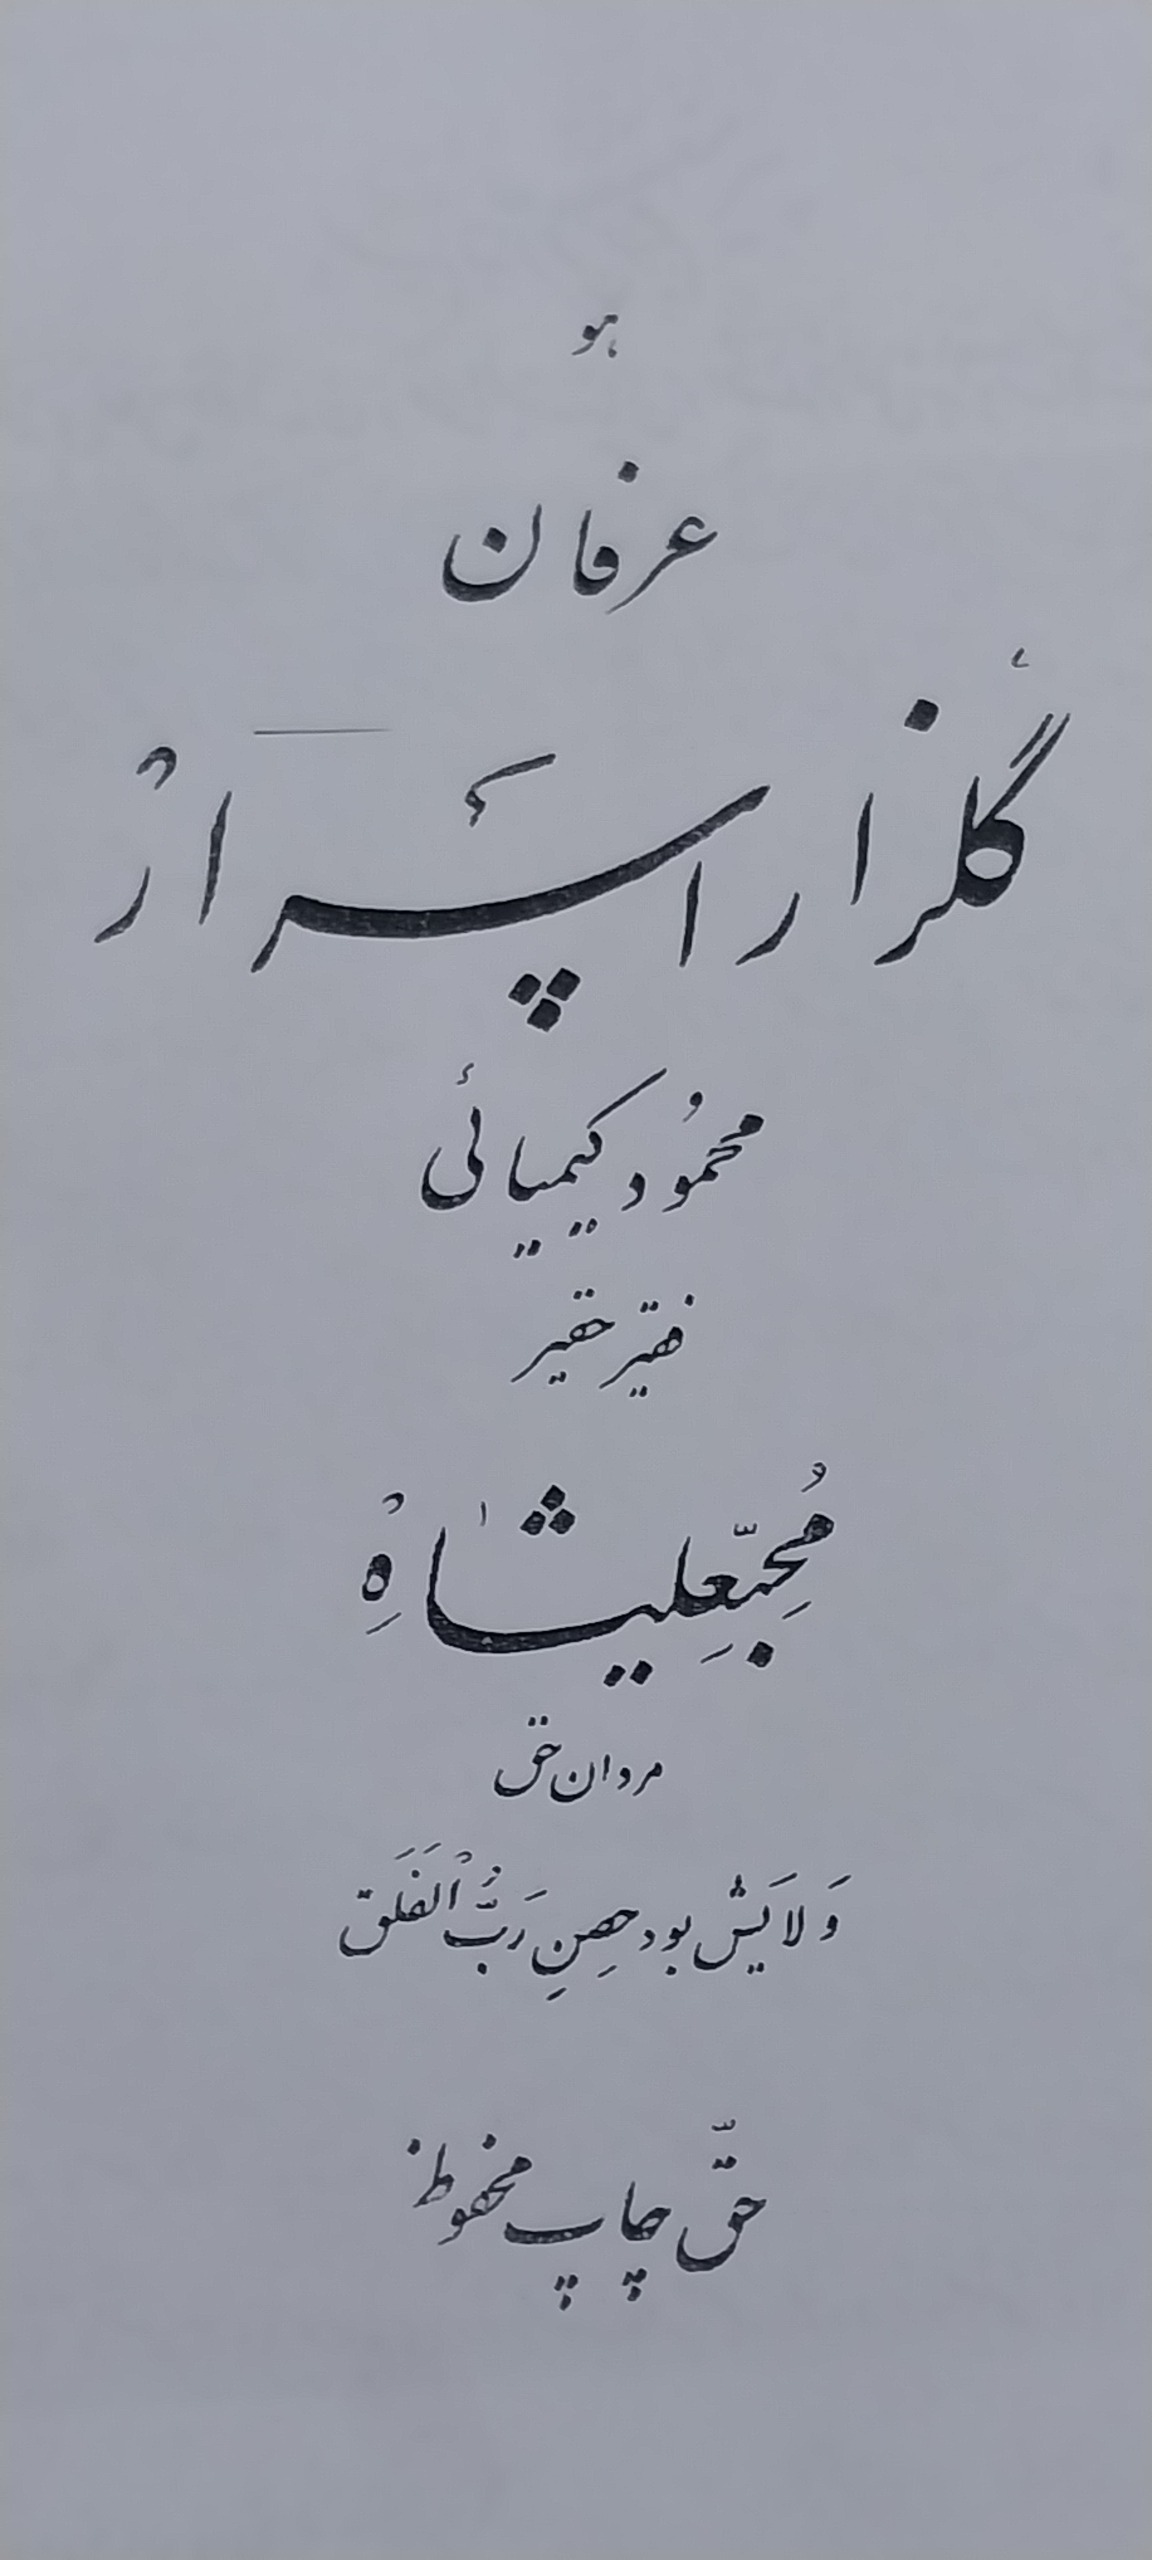 هو
عرفان
گلزار اسرار
محمُود کیمیائی
فقیر حقیر
مُحِبّعِلیشاهِ
مردان حق
وَلایَش بود حصنِ رَبُّ الْفَلَق
حقّ چاپ محفوظ